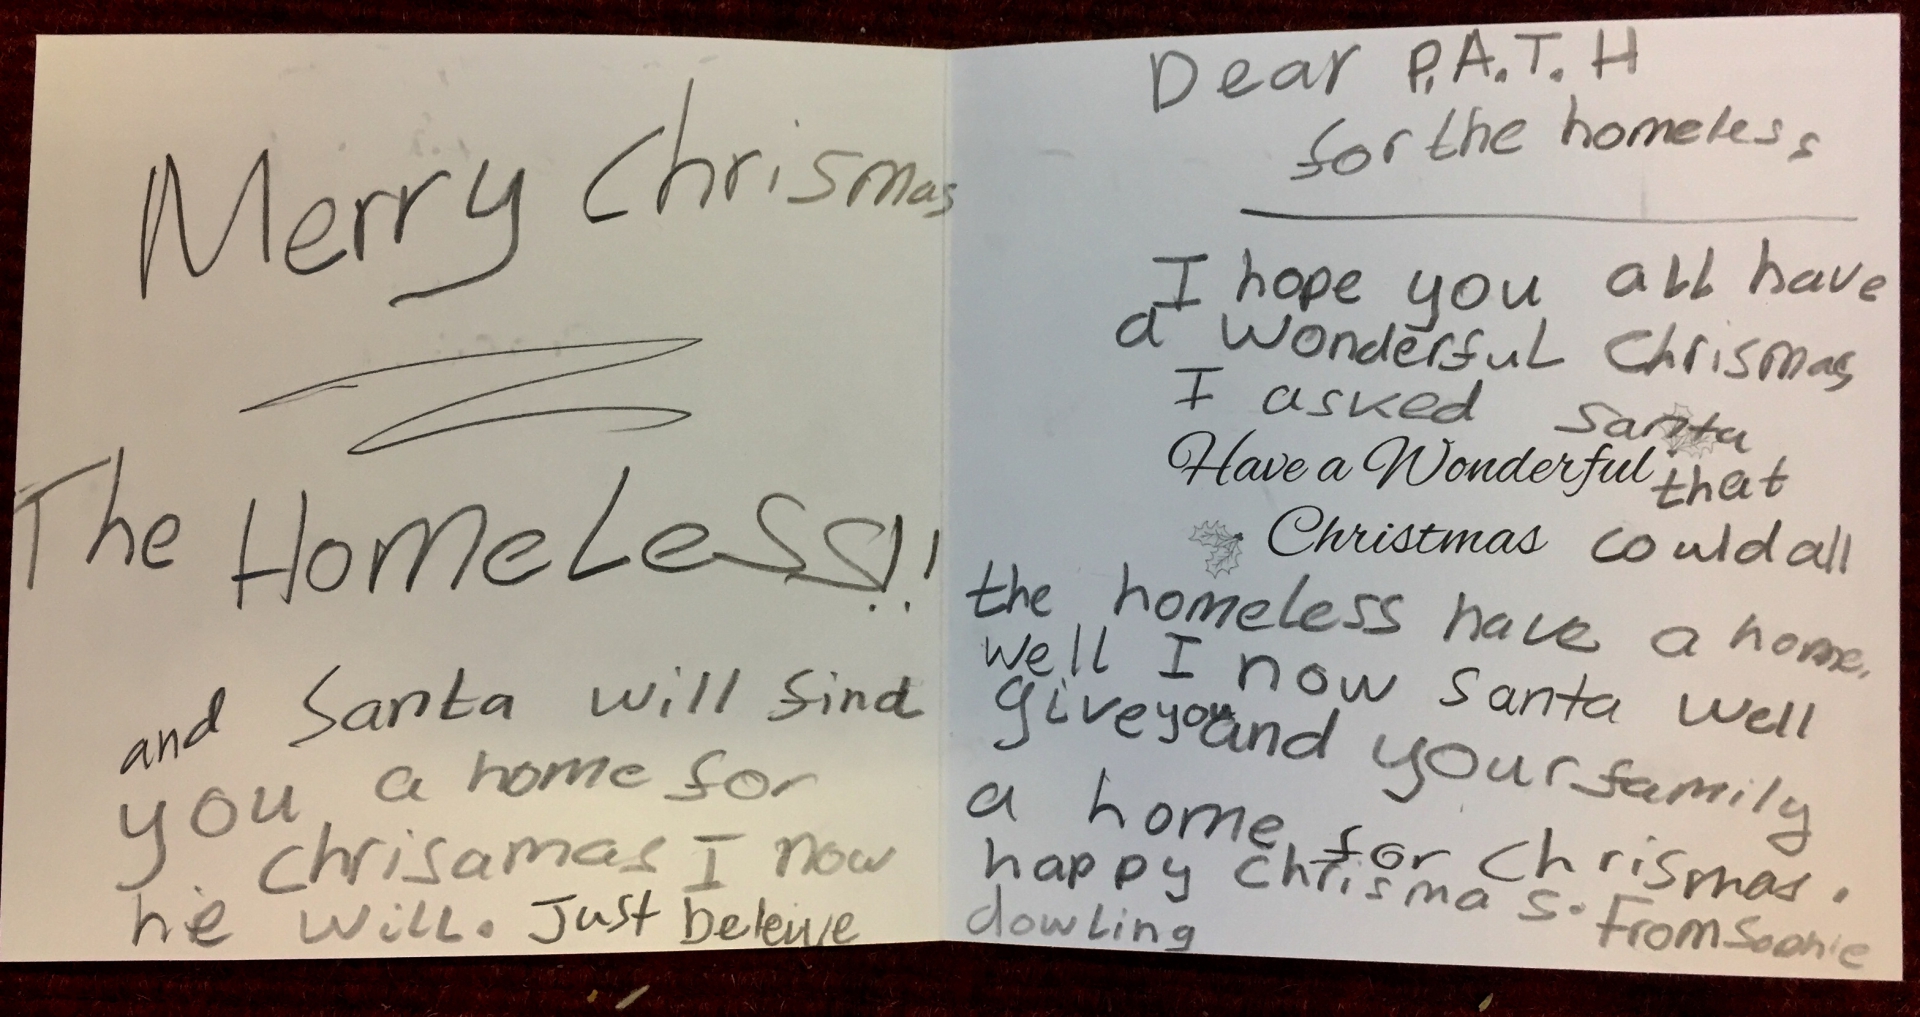 Merry Chrismas
The HomeLess!!
and Santa will find
you a home for
chrisamas I now
he will. Just beleive
Dear P.A.T.H
for the homeless
I hope you all have
a wonderful Chrismas
I asked Santa
Have a Wonderful that
Christmas could all
the homeless have a home.
well I now Santa well
give you and your family
a home for Chrismas.
happy Chrismas. From Sophie
dowling